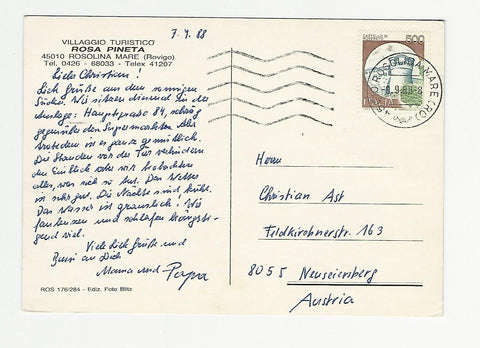 7.9.88
VILLAGGIO TURISTICO
ROSA PINETA
45010 ROSOLINA MARE (Rovigo)
Tel. 0426 - 68033 - Telex 41207
Liebe Christian!
Liebe Grüße aus dem sonnigen
Süden. Wir sitzen diesmal in der
Anlage: Hauptgasse 84, schräg
gegenüber den Supermarkten. Aber
trotzdem ist es ganz gemütlich.
Die Stauden vor der Tür verhindern
den Einblick oder wir beobachten
alles, was sich so tut. Das Wetter
ist sehr gut. Die Nächte sind kühl.
Das Wasser ist grauslich! Wir
faulenzen und schlafen
viel.
Viele liebe Grüße und
Bussi an Dich
Mama und Papa
ROS 176/284 - Ediz. Foto Blitz
500
ITALIA
ROSOLINA MARE (RO)
9.88-8
Herrn
Christian Ast
Feldkirchnerstr. 163
8055 Neuseiersberg
Austria